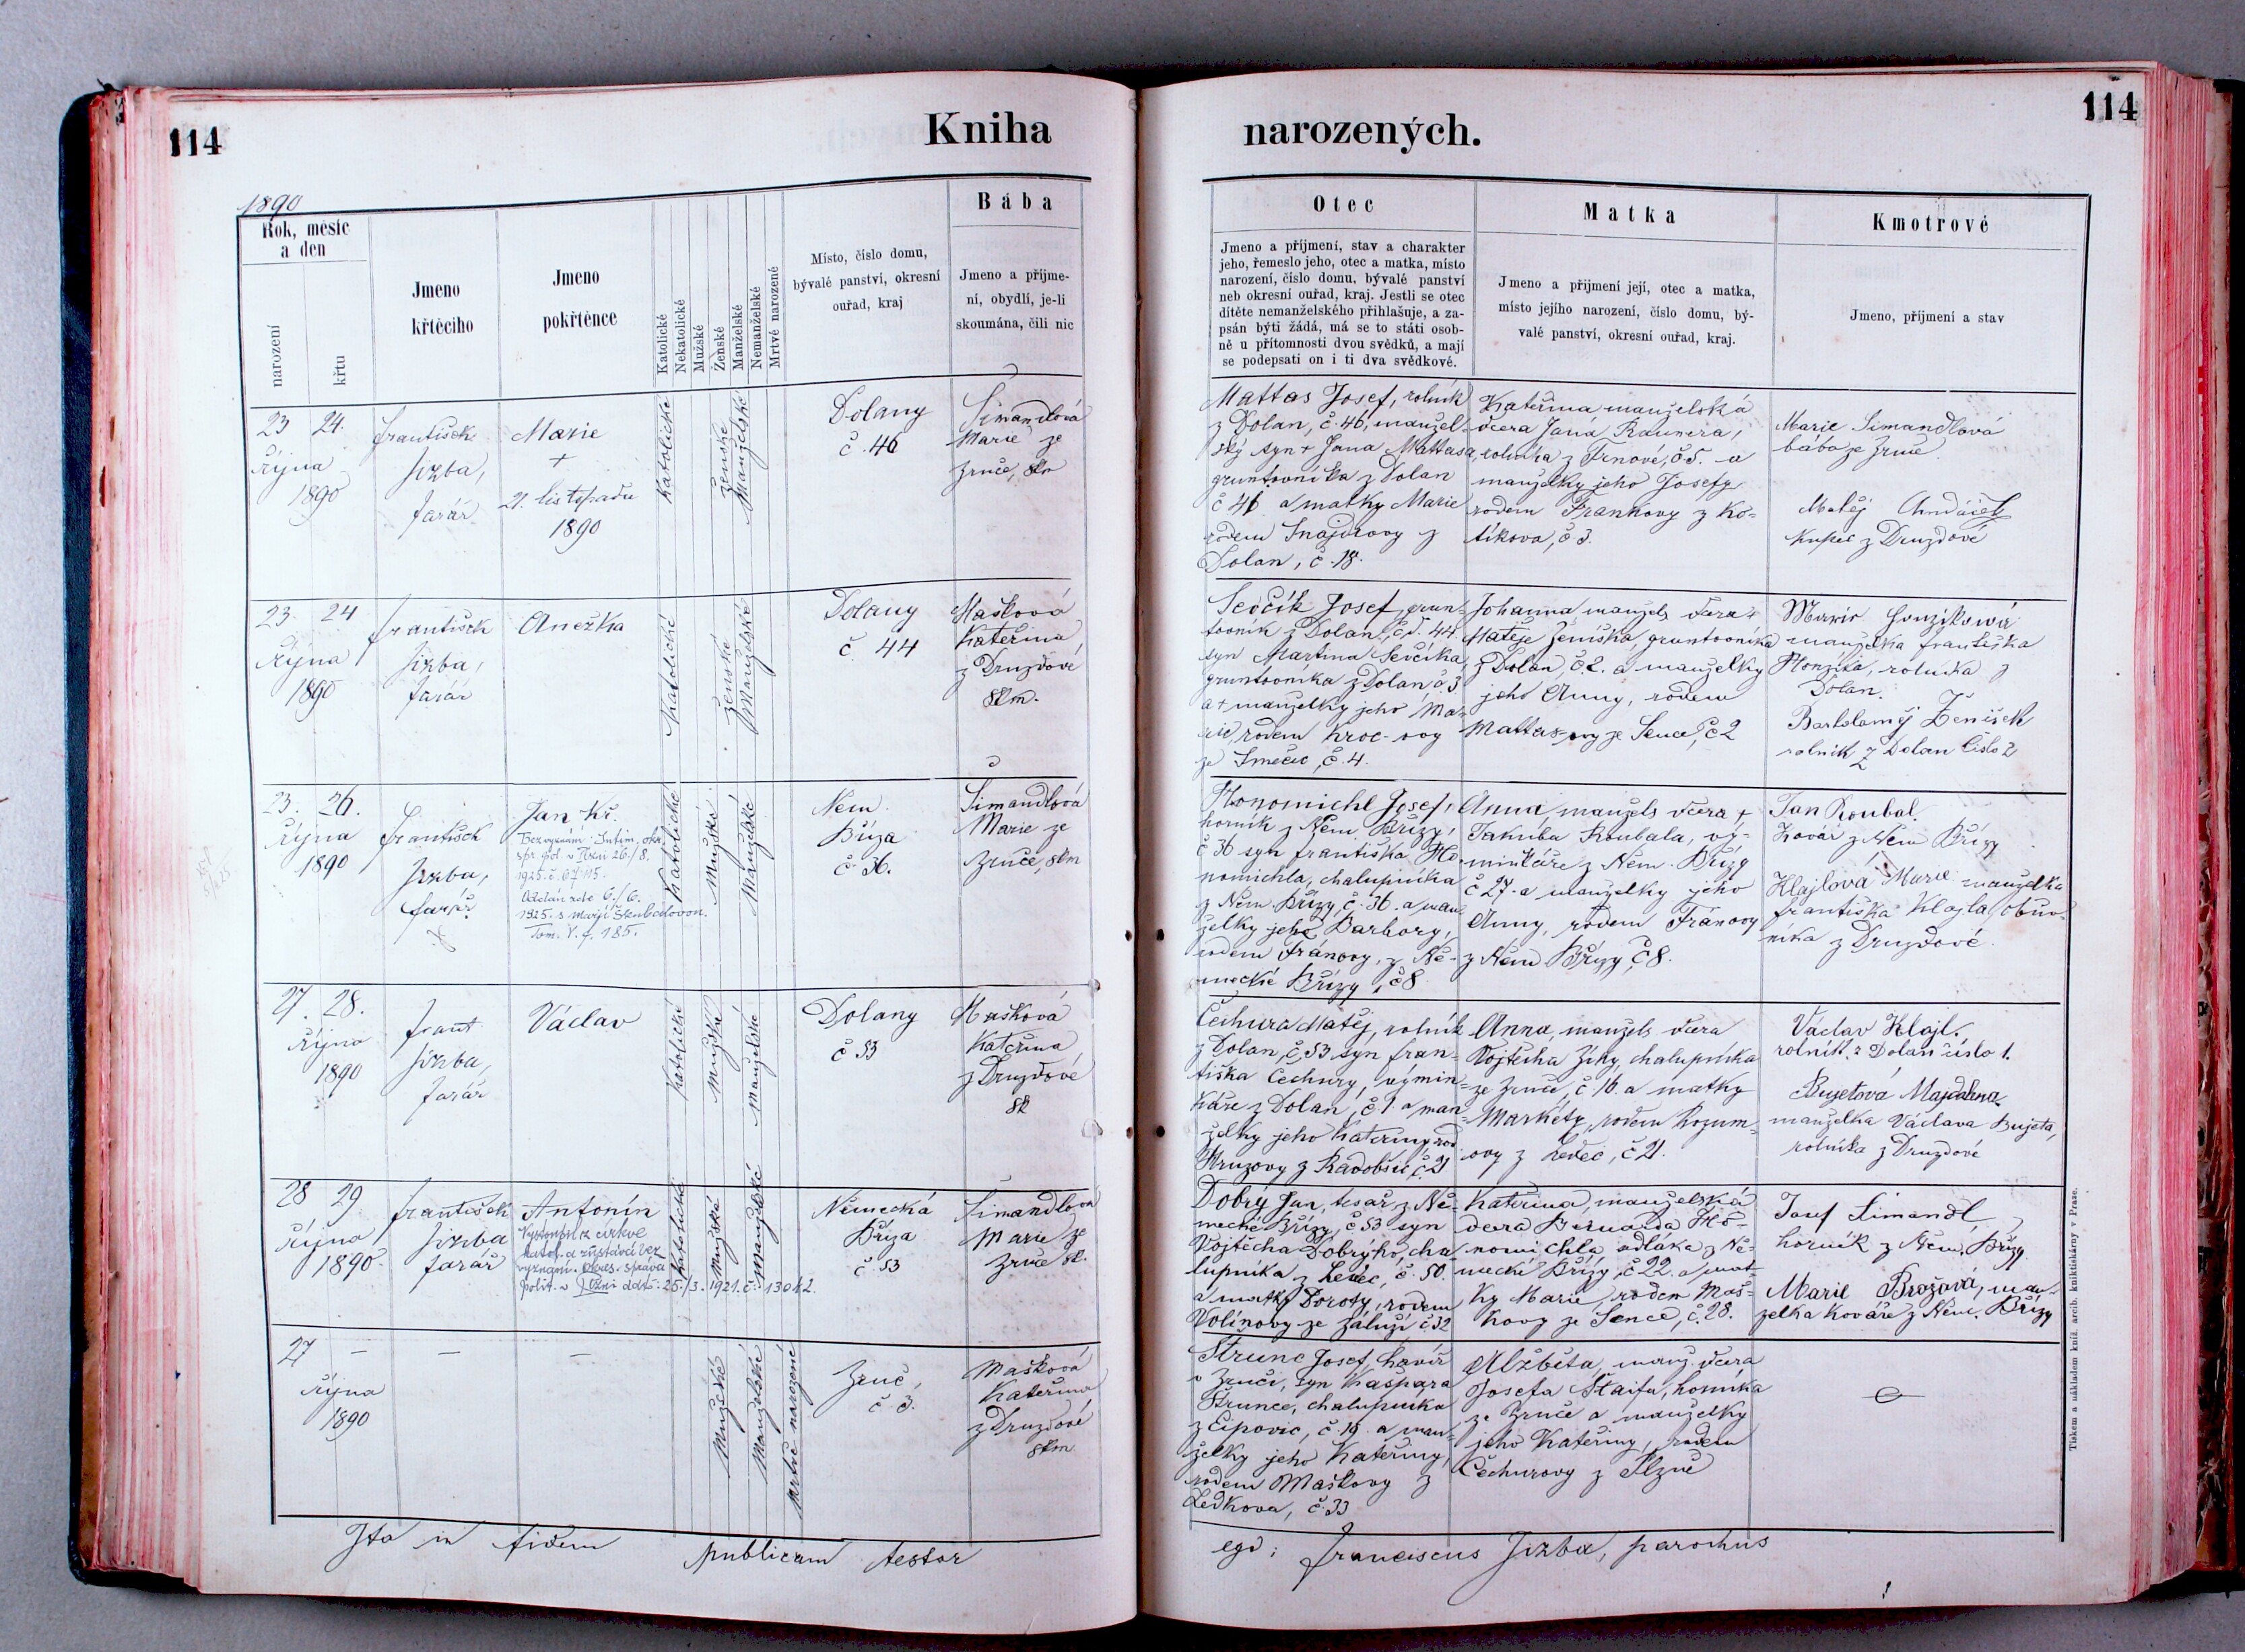 114
Kniha
1890
Rok, měsíc
a den
narození
křtu
Jmeno
křtěcího
Jmeno
pokřtěnce
Katolické
Nekatolické
Mužské
Ženské
Manželské
Nemanželské
Mrtvě narozené
Místo, číslo domu,
bývalé panství, okresní
ouřad, kraj
Bába
Jmeno a příjme-
ní, obydlí, je-li
skoumána, čili nic
23 24.
října
1890
František
Jizba,
farář
Marie
+
21. listopadu
1890
Katolické
ženské
Manželské
Dolany
č. 46
Šimandlová
Marie ze
Zruče, skm
23. 24
října
1890
František
Jizba,
farář
Anežka
Katolické
ženské
Manželské
Dolany
č. 44
Mašková
Kateřina
z Druzdové
skm.
23. 26.
října
1890
František
Jizba,
farář
Jan Kř.
Bez vyznání
1925.
Oddán zde 6./6.
1925. s Marií
Tom. V. f. 185.
Katolické
Mužské
Manželské
Něm.
Bříza
č. 36.
Šimandlová
Marie ze
Zruče, skm
27. 28.
října
1890
Frant
Jizba,
farář
Václav
Katolické
Mužské
manželské
Dolany
č 53
Mašková
Kateřina
z Druzdové
sk
28 29.
října
1890
František
Jizba
farář
Antonín
Vystoupil z církve
katol. a zůstává bez
vyznání. Okres. správa
polit. v Plzni ddto: 25./3. 1921. č. 13042.
Katolické
Mužské
Manželské
Německá
Bříza
č. 53
Šimandlová
Marie ze
Zruče sk.
27 — — —
října
1890
Mužské
Manželské
Mrtvě narozené
Zruč,
č 3.
Mašková
Kateřina
z Druzdové
skm
Ita in fidem publicam testor
114
narozených.
Otec
Jmeno a příjmení, stav a charakter
jeho, řemeslo jeho, otec a matka, místo
narození, číslo domu, bývalé panství
neb okresní ouřad, kraj. Jestli se otec
dítěte nemanželského přihlašuje, a za-
psán býti žádá, má se to státi osob-
ně u přítomnosti dvou svědků, a mají
se podepsati on i ti dva svědkové.
Matka
Jmeno a přijmení její, otec a matka,
místo jejího narození, číslo domu, bý-
valé panství, okresní ouřad, kraj.
Kmotrové
Jmeno, přijmení a stav
Mattas Josef, rolník
z Dolan, č. 46, manžel-
ský syn + Jana Mattasa,
gruntovníka z Dolan
č 46 a matky Marie
rodem Šnajdrovy z
Dolan, č. 18.
Kateřina manželská
dcera Jana Raunera,
rolníka z Trnové, č 5. a
manželky jeho Josefy
rodem Frankovy z Ko-
tíkova, č. 3.
Marie Šimandlová
bába ze Zruče.
Matěj
kupec z Druzdové
Sevčík Josef, grun-
tovník z Dolan, č. 44.
syn Martina Sevčíka,
gruntovníka z Dolan č. 3
a + manželky jeho Ma-
rie, rodem Kroc-ovy
ze Tmečic, č. 4.
Johanna manžels dcera +
Matěje Ženíška, gruntovníka
z Dolan, č. 2. a manželky
jeho Anny, rodem
Mattas-ovy ze Sence, č 2
Marie Honzíková
manželka Františka
Honzíka, rolníka z
Dolan.
Bartoloměj Ženíšek
rolník z Dolan číslo 2
Honomichl Josef,
horník z Něm. Břízy,
č 36 syn Františka Ho-
nomichla, chalupníka
z Něm. Břízy, č. 36. a man-
želky jeho Barbory,
rodem Fránovy, z Ně-
mecké Břízy, č 8
Anna, manžels dcera +
Jakuba Roubala, vý-
minkáře z Něm. Břízy
č 27. a manželky jeho
Anny, rodem Fránovy
z Něm Břízy, č 8.
Jan Roubal.
kovář z Něm Břízy
Klajlová Marie manželka
Františka Klajla, obuv-
níka z Druzdové.
Čechura Matěj, rolník
z Dolan, č 53 syn Fran-
tiška Čechury, výmin-
káře z Dolan, č 1. a man-
želky jeho Kateřiny rod
Hruzovy z Radobšic č. 21
Anna, manžels dcera
Vojtěcha Zíky, chalupníka
ze Zruče, č 16. a matky
Markéty, rodem Rozum-
ovy z Ledec, č 21.
Václav Klajl.
rolník z Dolan číslo 1.
Bujetová Majdalena
manželka Václava Bujeta,
rolníka z Druzdové
Dobrý Jan, tesař z Ně-
mecké Břízy, č 53 syn
Vojtěcha Dobrýho, cha-
lupníka z Ledec, č. 50.
a matky Doroty, rodem
Volínovy ze Záluží č. 32
Kateřina, manželská
dcera Bernarda Ho-
nomichla sedláka z Ně-
mecké Břízy, č 22. a mat-
ky Marie, rodem Maš-
kovy ze Sence, č. 28.
Josef Šimandl
horník z Něm. Břízy
Marie Brožová, man-
želka kováře z Něm. Břízy
Štrunc Josef, havíř
v Zruči, syn Kašpara
Štrunce, chalupníka
z Eipovic, č. 19. a man-
želky jeho Kateřiny,
rodem Maškovy z
Ledkova, č. 33
Alžběta, manž. dcera
Josefa Štaifa, horníka
ze Zruče a manželky
jeho Kateřiny, rodem
Čechurovy z Plzně
ego: Franciscus Jizba, parochus
Tiskem a nákladem kníž. arcib. knihtiskárny v Praze.